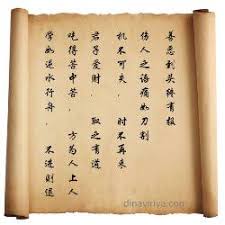 善恶到头终有报
伤人之语痛如刀割
机不可失，时不再来
君子爱财，取之有道
吃得苦中苦，方为人上人
学如逆水行舟，不进则退
dinaviriya.com